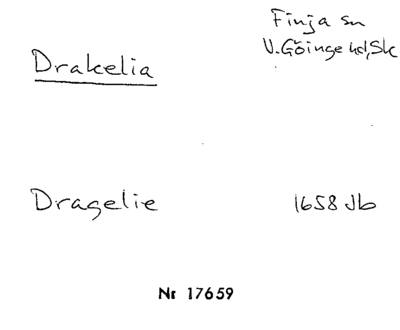 Finja sn
Drakelia
V.Göinge hd, Sk
Dragelie
1658 Jb
Nr 17659